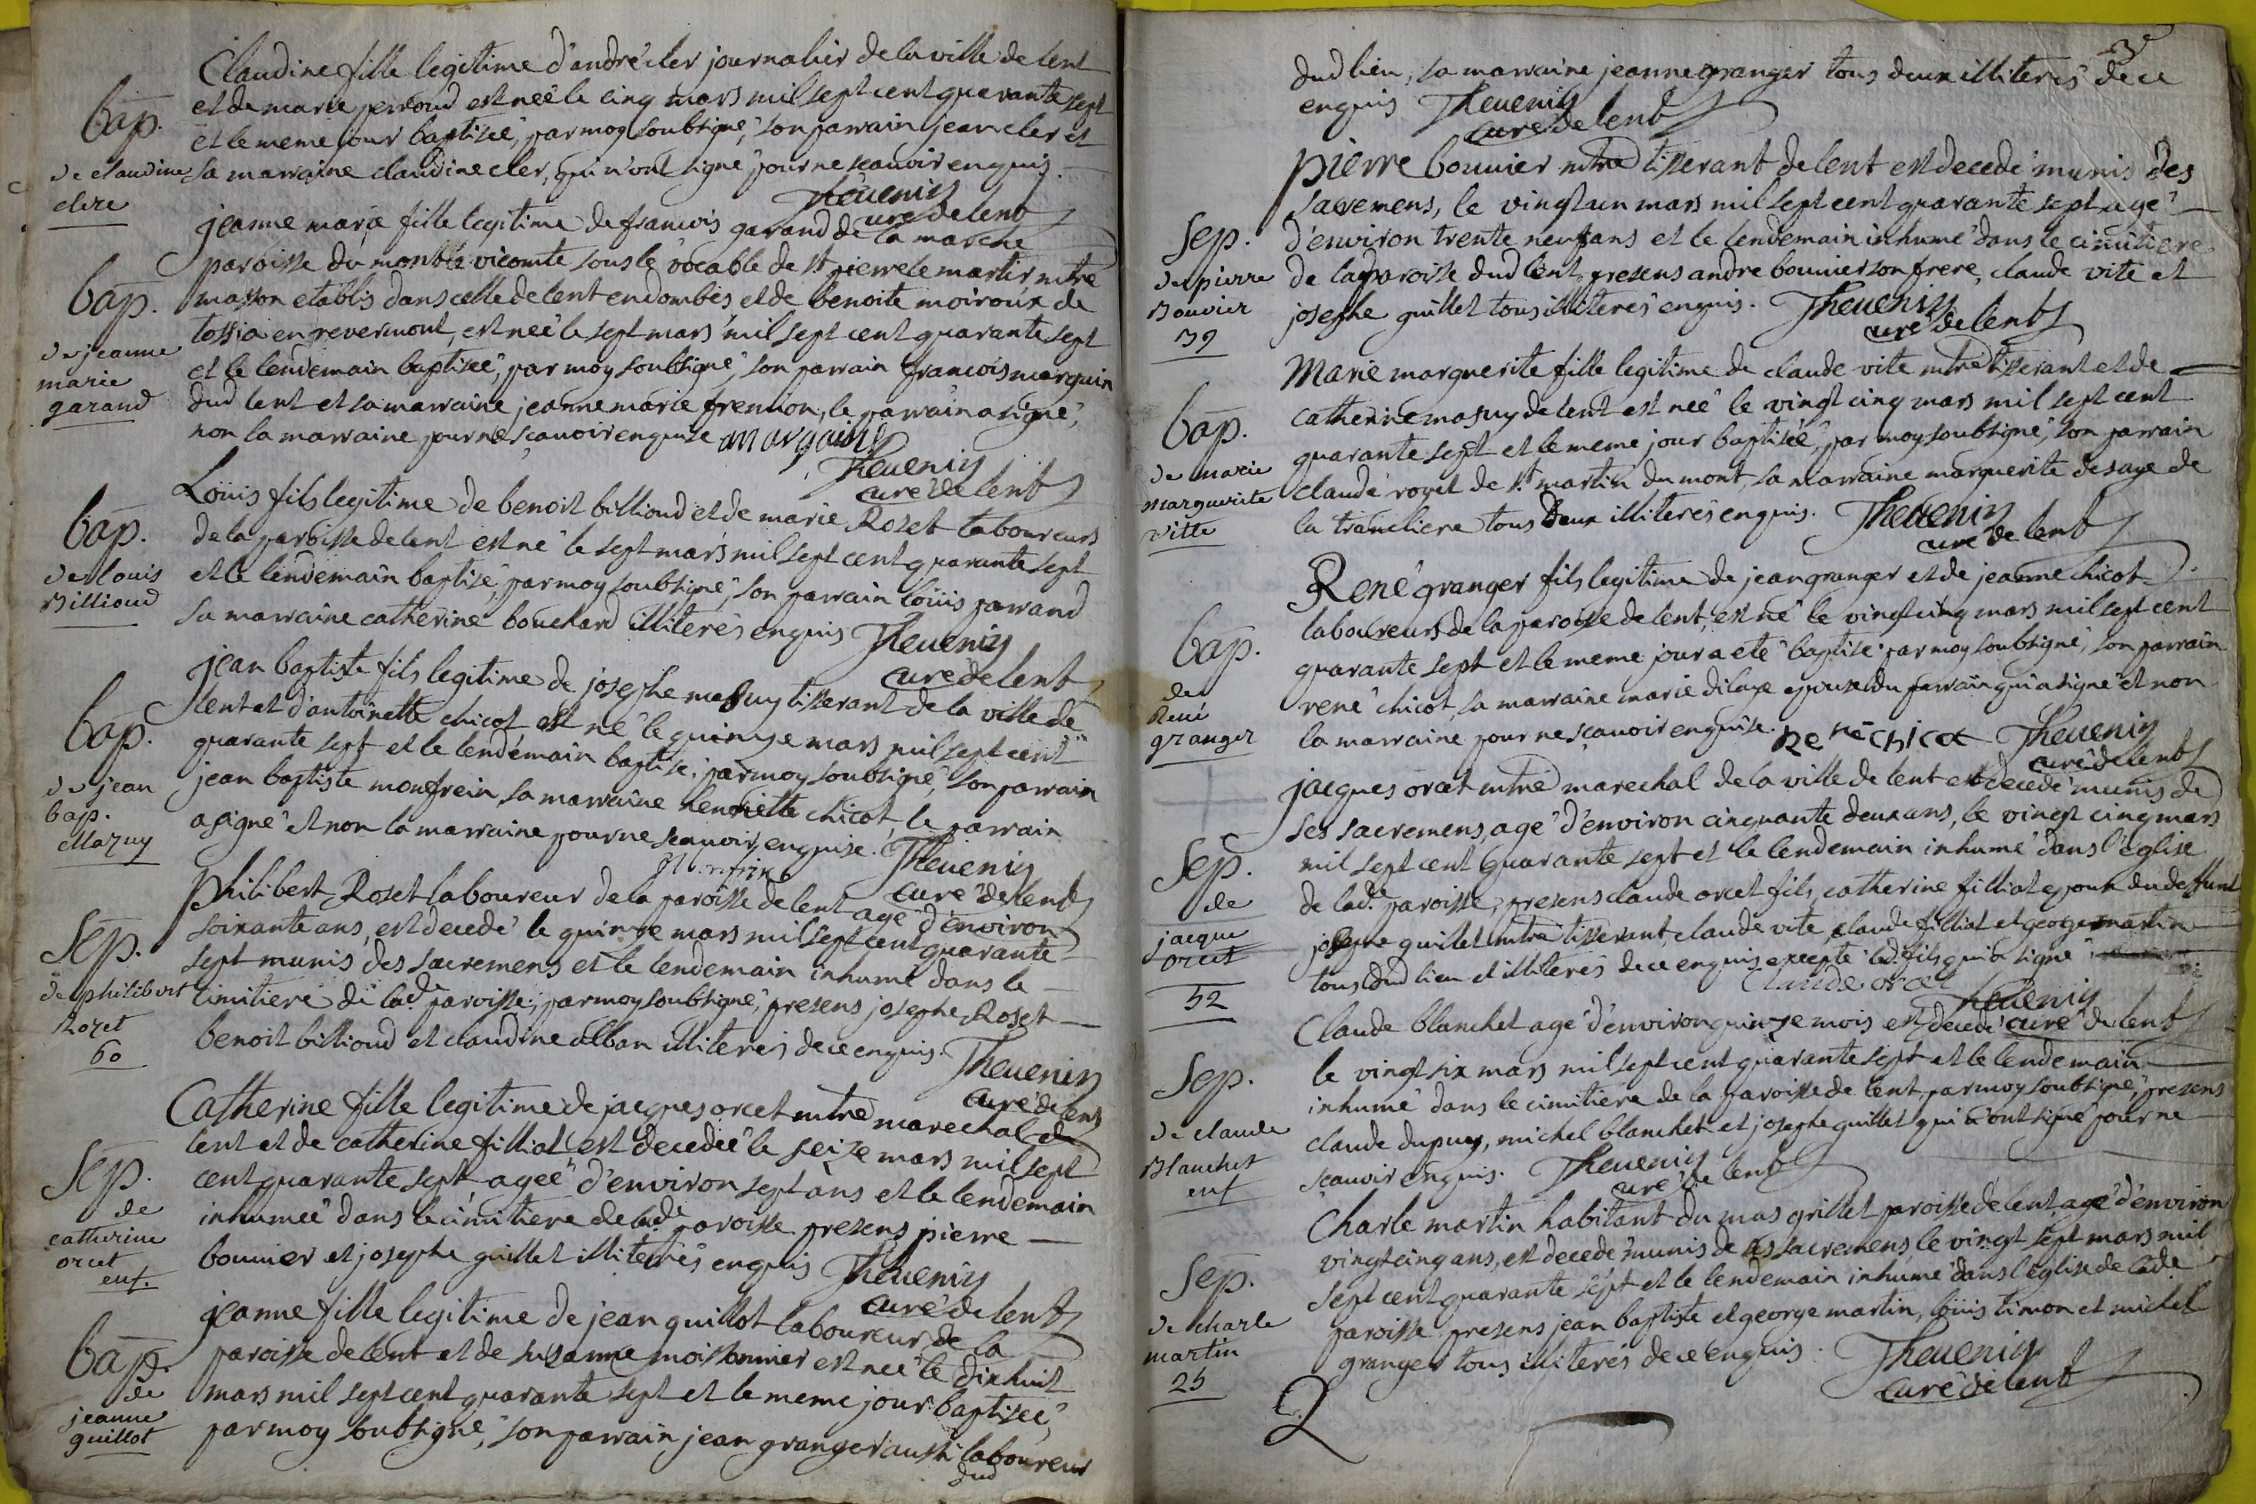 Claudine fille legitime d'andré cler journalier de la ville de lent
et de marie perroud est neé le cinq mars mil sept cent quarante sept
Bap. et le meme jour baptiseé, par moy soubsigné, son parrain jean cler et
de claudine sa marraine claudine cler, qui n'ont signé pour ne scavoir enquis
clere
Thevenin
curé de lent
jeanne marie fille legitime de francois garand de la marche
paroisse du montés vicomte sous le vocable de st pierre le martir, mtre
Bap. masson etablis dans celle de lent en dombes et de benoite moiroux de
tossia en revermont, est neé le sept mars mil sept cent quarante sept
de jeanne et le lendemain baptiseé, par moy soubsigné, son parrain francois marguin
marie dud lent et sa marraine jeanne marie frennon, le parrain a signé,
garand non la marraine pour ne scavoir enquise marguin
Thevenin
curé de lent
Loüis fils legitime de benoit billioud et de marie Rozet laboureurs
Bap. de la paroisse de lent est né le sept mars mil sept cent quarante sept
de louis et le lendemain baptisé, par moy soubsigné, son parrain loüis parrand
Billioud sa marraine catherine bouchard illiterés enquis Thevenin
curé de lent
jean baptiste fils legitime de josephe masuy tisserant de la ville de
lent et d'antoinette chicot est né le quinze mars mil sept cent
Bap. quarante sept et le lendemain baptisé, par moy soubsigné, son parrain
de jean jean baptiste monfrein sa marraine henriette chicot, le parrain
bap. a signé et non la marraine pour ne scavoir enquise. Thevenin
Mazuy
curé de lent
philibert Roset laboureur de la paroisse de lent agé d'environ
soixante ans, est decedé le quinze mars mil sept cent quarante
Sep. sept munis des sacremens et le lendemain inhumé dans le
de philibert cimitiere de lade paroisse, par moy soubsigné, presens josephe Roset
Rozet benoit billioud et claudine alban illiterés de ce enquis. Thevenin
60
curé de lent
Catherine fille legitime de jacques orcet mtre marechal de
lent et de catherine filliat est decedeé le seize mars mil sept
Sep. cent quarante sept ageé d'environ sept ans et le lendemain
de inhumeé dans le cimitiere de lade paroisse presens pierre
catherine bouvier et josephe guillet illiterés enquis Thevenin
orcet
enf.
curé de lent
jeanne fille legitime de jean guillot laboureur de la
Bap. paroisse de lent et de susanne moissonnier est neé le dixhuit
de mars mil sept cent quarante sept et le meme jour baptiseé,
jeanne par moy soubsigné, son parrain jean granger aussi laboureur
guillot
dud
3e
dud lieu, sa marraine jeanne granger tous deux illiterés de ce
enquis Thevenin
curé de lent
pierre bouvier mtre tisserant de lent est decedé munis des
sacremens, le vingt un mars mil sept cent quarante sept agé
Sep. d'environ trente neuf ans et le lendemain inhumé dans le cimitiere
de pierre de la paroisse dud lent, presens andre bouvier son frere, claude vite et
Bouvier josephe guillet tous illiterés enquis. Thevenin
39
curé de lent
Marie marguerite fille legitime de claude vite mtre tisserant et de
catherine masuy de lent est neé le vingt cinq mars mil sept cent
Bap. quarante sept et le meme jour baptiseé, par moy soubsigné, son parrain
de marie claude royet de st martin du mont, sa marraine marguerite desaye de
marguerite la trancliere tous deux illiterés enquis. Thevenin
vitte
curé de lent
René granger fils legitime de jean granger et de jeanne chicot
laboureurs de la paroisse de lent, est né le vingt cinq mars mil sept cent
Bap. quarante sept et le meme jour a eté baptisé par moy soubsigné, son parrain
de rené chicot, sa marraine marie dilaye epouse du parrain qui a signé et non
René la marraine pour ne scavoir enquise. René chicot Thevenin
granger
curé de lent
jacques orcet mtre marechal de la ville de lent est decedé munis de
ses sacremens, agé d'environ cinquante deux ans, le vingt cinq mars
Sep. mil sept cent quarante sept et le lendemain inhumé dans l'eglise
de de lade paroisse, presens claude orcet fils, catherine filliat epouse du deffunt
jacque josephe guillet mtre tisserant, claude vite, claude filliat et george martin
orcet tous dud lieu et illiterés de ce enquis excepté led. fils qui a signé
52
Claude orcet
Thevenin
curé de lent
Claude blanchet agé d'environ quinze mois est decedé
le vingt six mars mil sept cent quarante sept et le lendemain
Sep. inhumé dans le cimitiere de la paroisse de lent, par moy soubsigné, presens
de claude claude dupuy, michel blanchet et josephe guillet qui n'ont signé pour ne
Blanchet scavoir enquis. Thevenin
enf
curé de lent
Charle martin habitant du mas grillet paroisse de lent agé d'environ
vingt cinq ans, est decedé munis de ses sacremens, le vingt sept mars mil
Sep. sept cent quarante sept et le lendemain inhumé dans l'eglise de lade
de charle paroisse presens jean baptiste et george martin, loüis timon et michel
martin granger tous illiterés de ce enquis. Thevenin
25
curé de lent